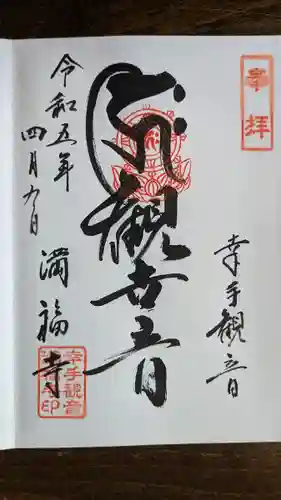 奉拝
幸手観音
観世音
令和五年
四月九日
満福寺
幸手観音